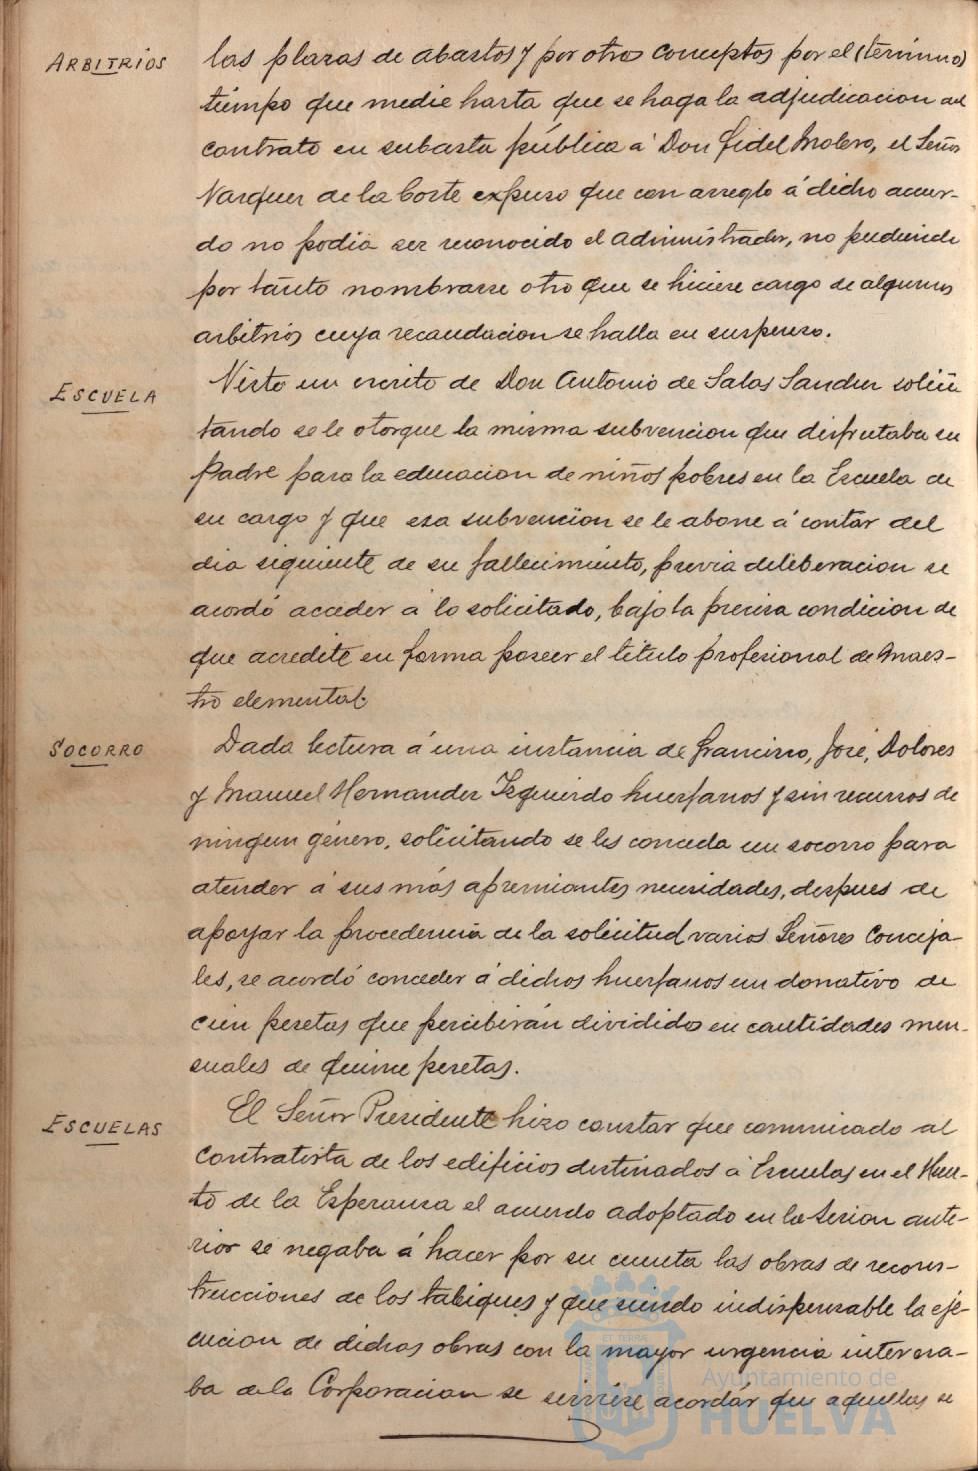 ARBITRIOS
las plazas de abastos y por otros conceptos por el (término)
tiempo que medie hasta que se haga la adjudicacion del
contrato en subasta pública á Don Fidel Molero, el Señor
Vazquez de la Corte expuso que con arreglo á dicho acuer-
do no podia ser reconocido el Administrador, no pudiendo
por tanto nombrarse otro que se hiciese cargo de algunos
arbitrios cuya recaudacion se halla en suspenso.
ESCUELA
Visto un escrito de Don Antonio de Salas Sanchez solici
tando se le otorgue la misma subvencion que disfrutaba su
padre para la educacion de niños pobres en la Escuela de
su cargo y que esa subvencion se le abone á contar del
dia siguiente de su fallecimiento, previa deliberacion se
acordó acceder á lo solicitado, bajo la precisa condicion de
que acredite en forma poseer el titulo profesional de Maes-
tro elemental.
SOCORRO
Dada lectura á una instancia de Francisco, José, Dolores
y Manuel Hernandez Izquierdo huerfanos y sin recursos de
ningun género, solicitando se les conceda un socorro para
atender á sus más apremiantes necesidades, despues de
apoyar la procedencia de la solicitud varios Señores Conceja-
les, se acordó conceder á dichos huerfanos un donativo de
cien pesetas que percibirán divididos en cantidades men-
suales de quince pesetas.
ESCUELAS
El Señor Presidente hizo constar que comunicado al
contratista de los edificios destinados á Escuelas en el Huer-
to de la Esperanza el acuerdo adoptado en la sesion ante-
rior se negaba á hacer por su cuenta las obras de recons-
trucciones de los tabiques y que siendo indispensable la eje-
cucion de dichas obras con la mayor urgencia interesa-
ba de la Corporacion se sirviese acordár que aquellas se
Ayuntamiento de
HUELVA